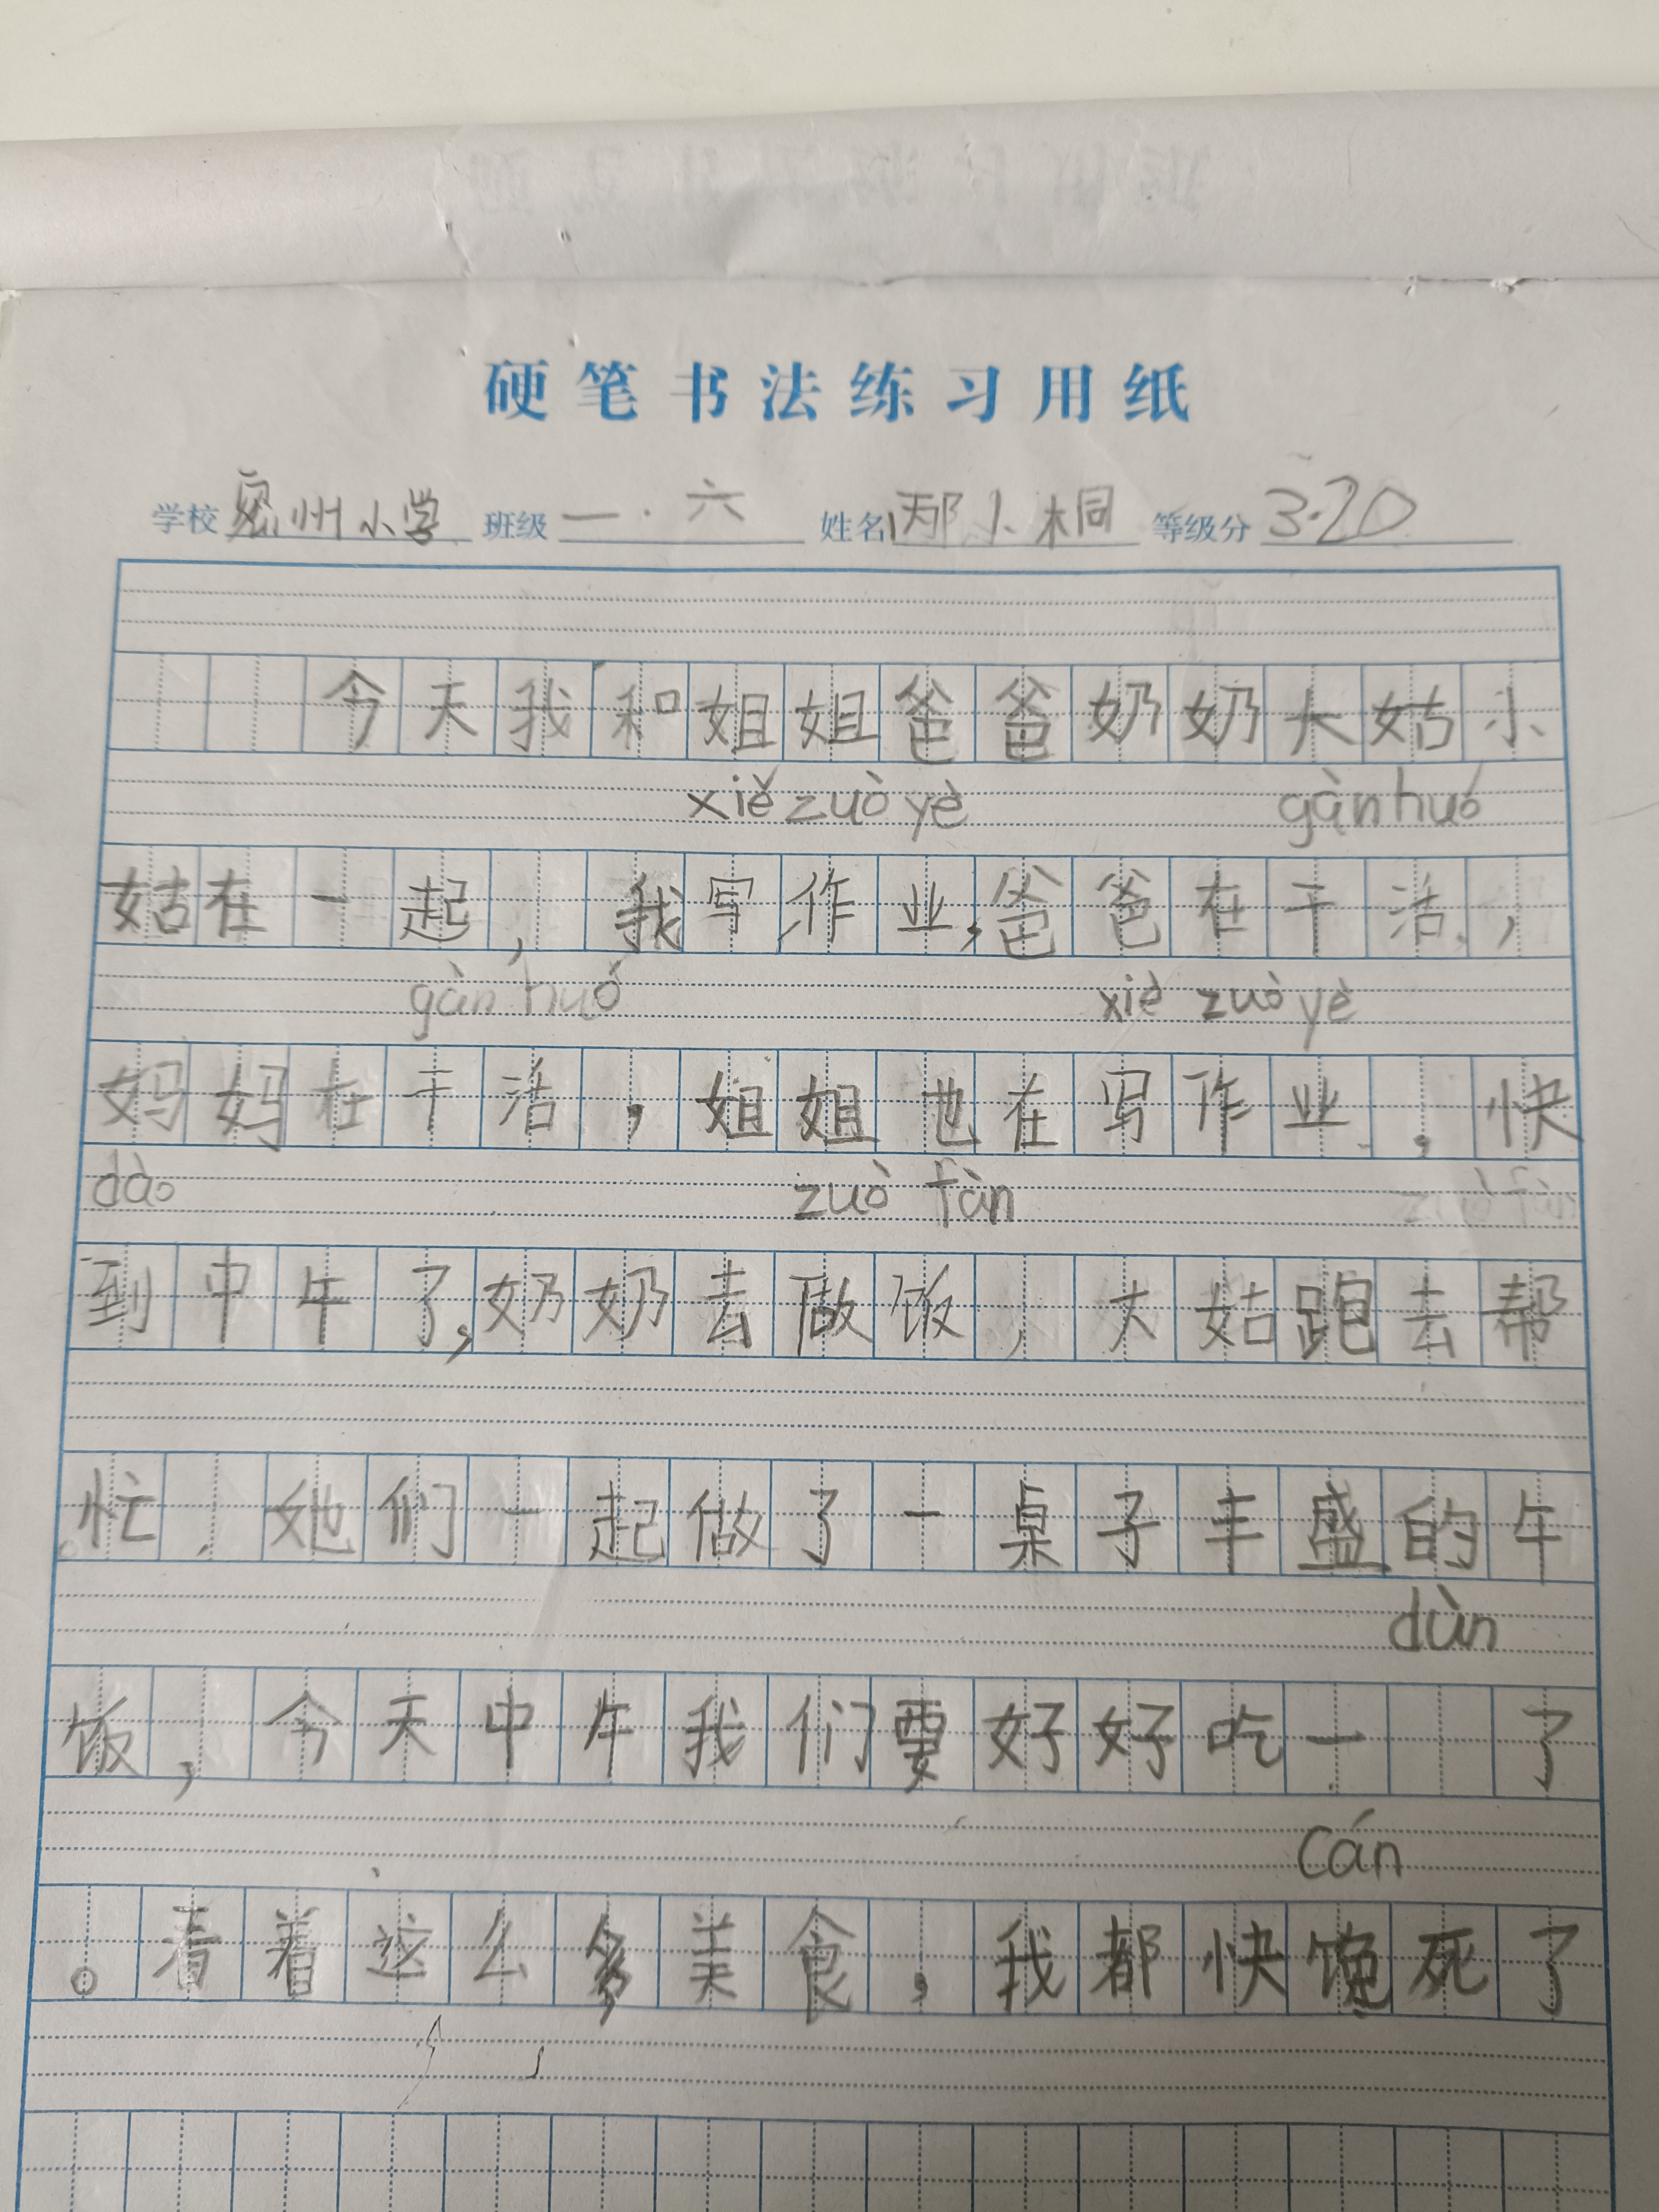 硬笔书法练习用纸
学校 密州小学 班级 一·六 姓名 邴小桐 等级分 3.20
今天我和姐姐爸爸奶奶大姑小
xiě zuò yè gàn huó
姑在一起，我写作业，爸爸在干活，
gàn huó xiě zuò yè
妈妈在干活，姐姐也在写作业，快
dào zuò fàn
到中午了，奶奶去做饭，大姑跑去帮
忙，她们一起做了一桌子丰盛的午
dùn
饭，今天中午我们要好好吃一 了
cán
。看着这么多美食，我都快馋死了